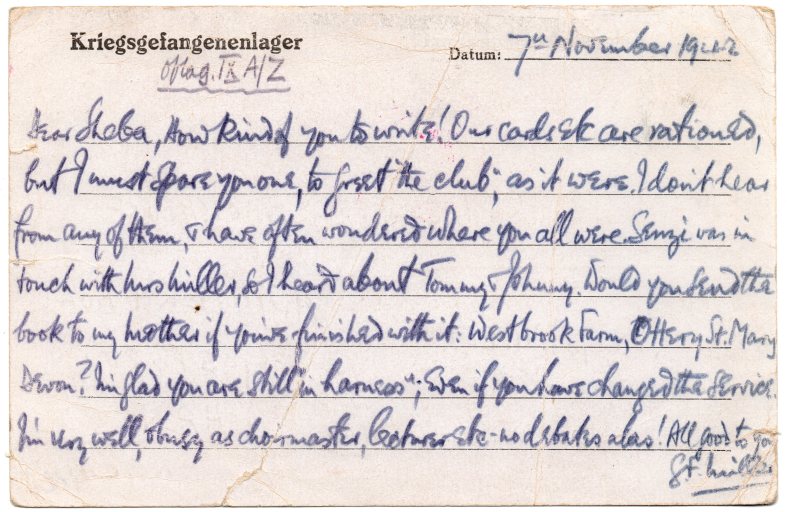 Kriegsgefangenenlager
Datum: 7th November 1942
Oflag. IX A/Z
Dear Sheba, How kind of you to write! Our cards etc are rationed,
but I must spare you one, to greet "the club", as it were. I don't hear
from any of them, & have often wondered where you all were. Senzi was in
touch with Mrs Miller, so I heard about Tommy & Johnny. Would you send the
book to my mother if you've finished with it: Westbrook Farm, Ottery St. Mary
Devon? I'm glad you are still "in harness"; even if you have changed the service.
I'm very well, & busy as choirmaster, lecturer etc - no debates alas! All good to you